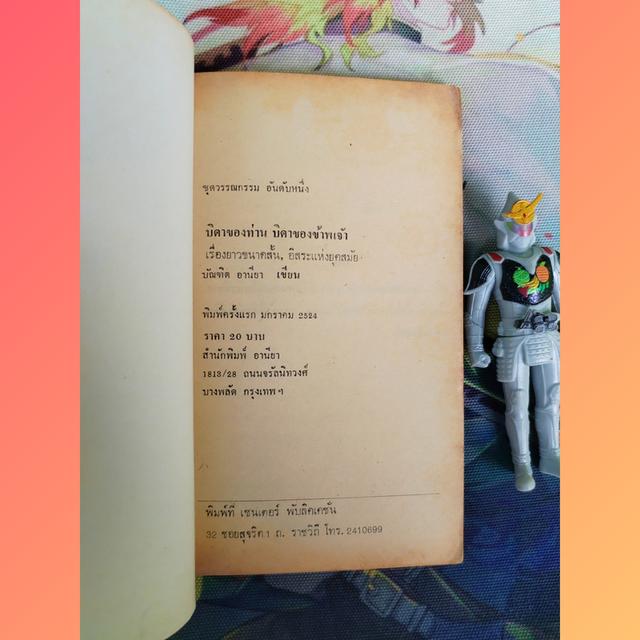 ชุดวรรณกรรม อันดับหนึ่ง
บิดาของท่าน บิดาของข้าพเจ้า
เรื่องยาวขนาดสั้น, อิสระแห่งยุคสมัย
บัณฑิต อานียา เขียน
พิมพ์ครั้งแรก มกราคม 2524
ราคา 20 บาท
สำนักพิมพ์ อานียา
1813/28 ถนนจรัลนิทวงศ์
บางพลัด กรุงเทพฯ
พิมพ์ที่ เซนเตอร์ พับลิคเคชั่น
32 ซอยสุจริต 1 ถ. ราชวิถี โทร. 2410699